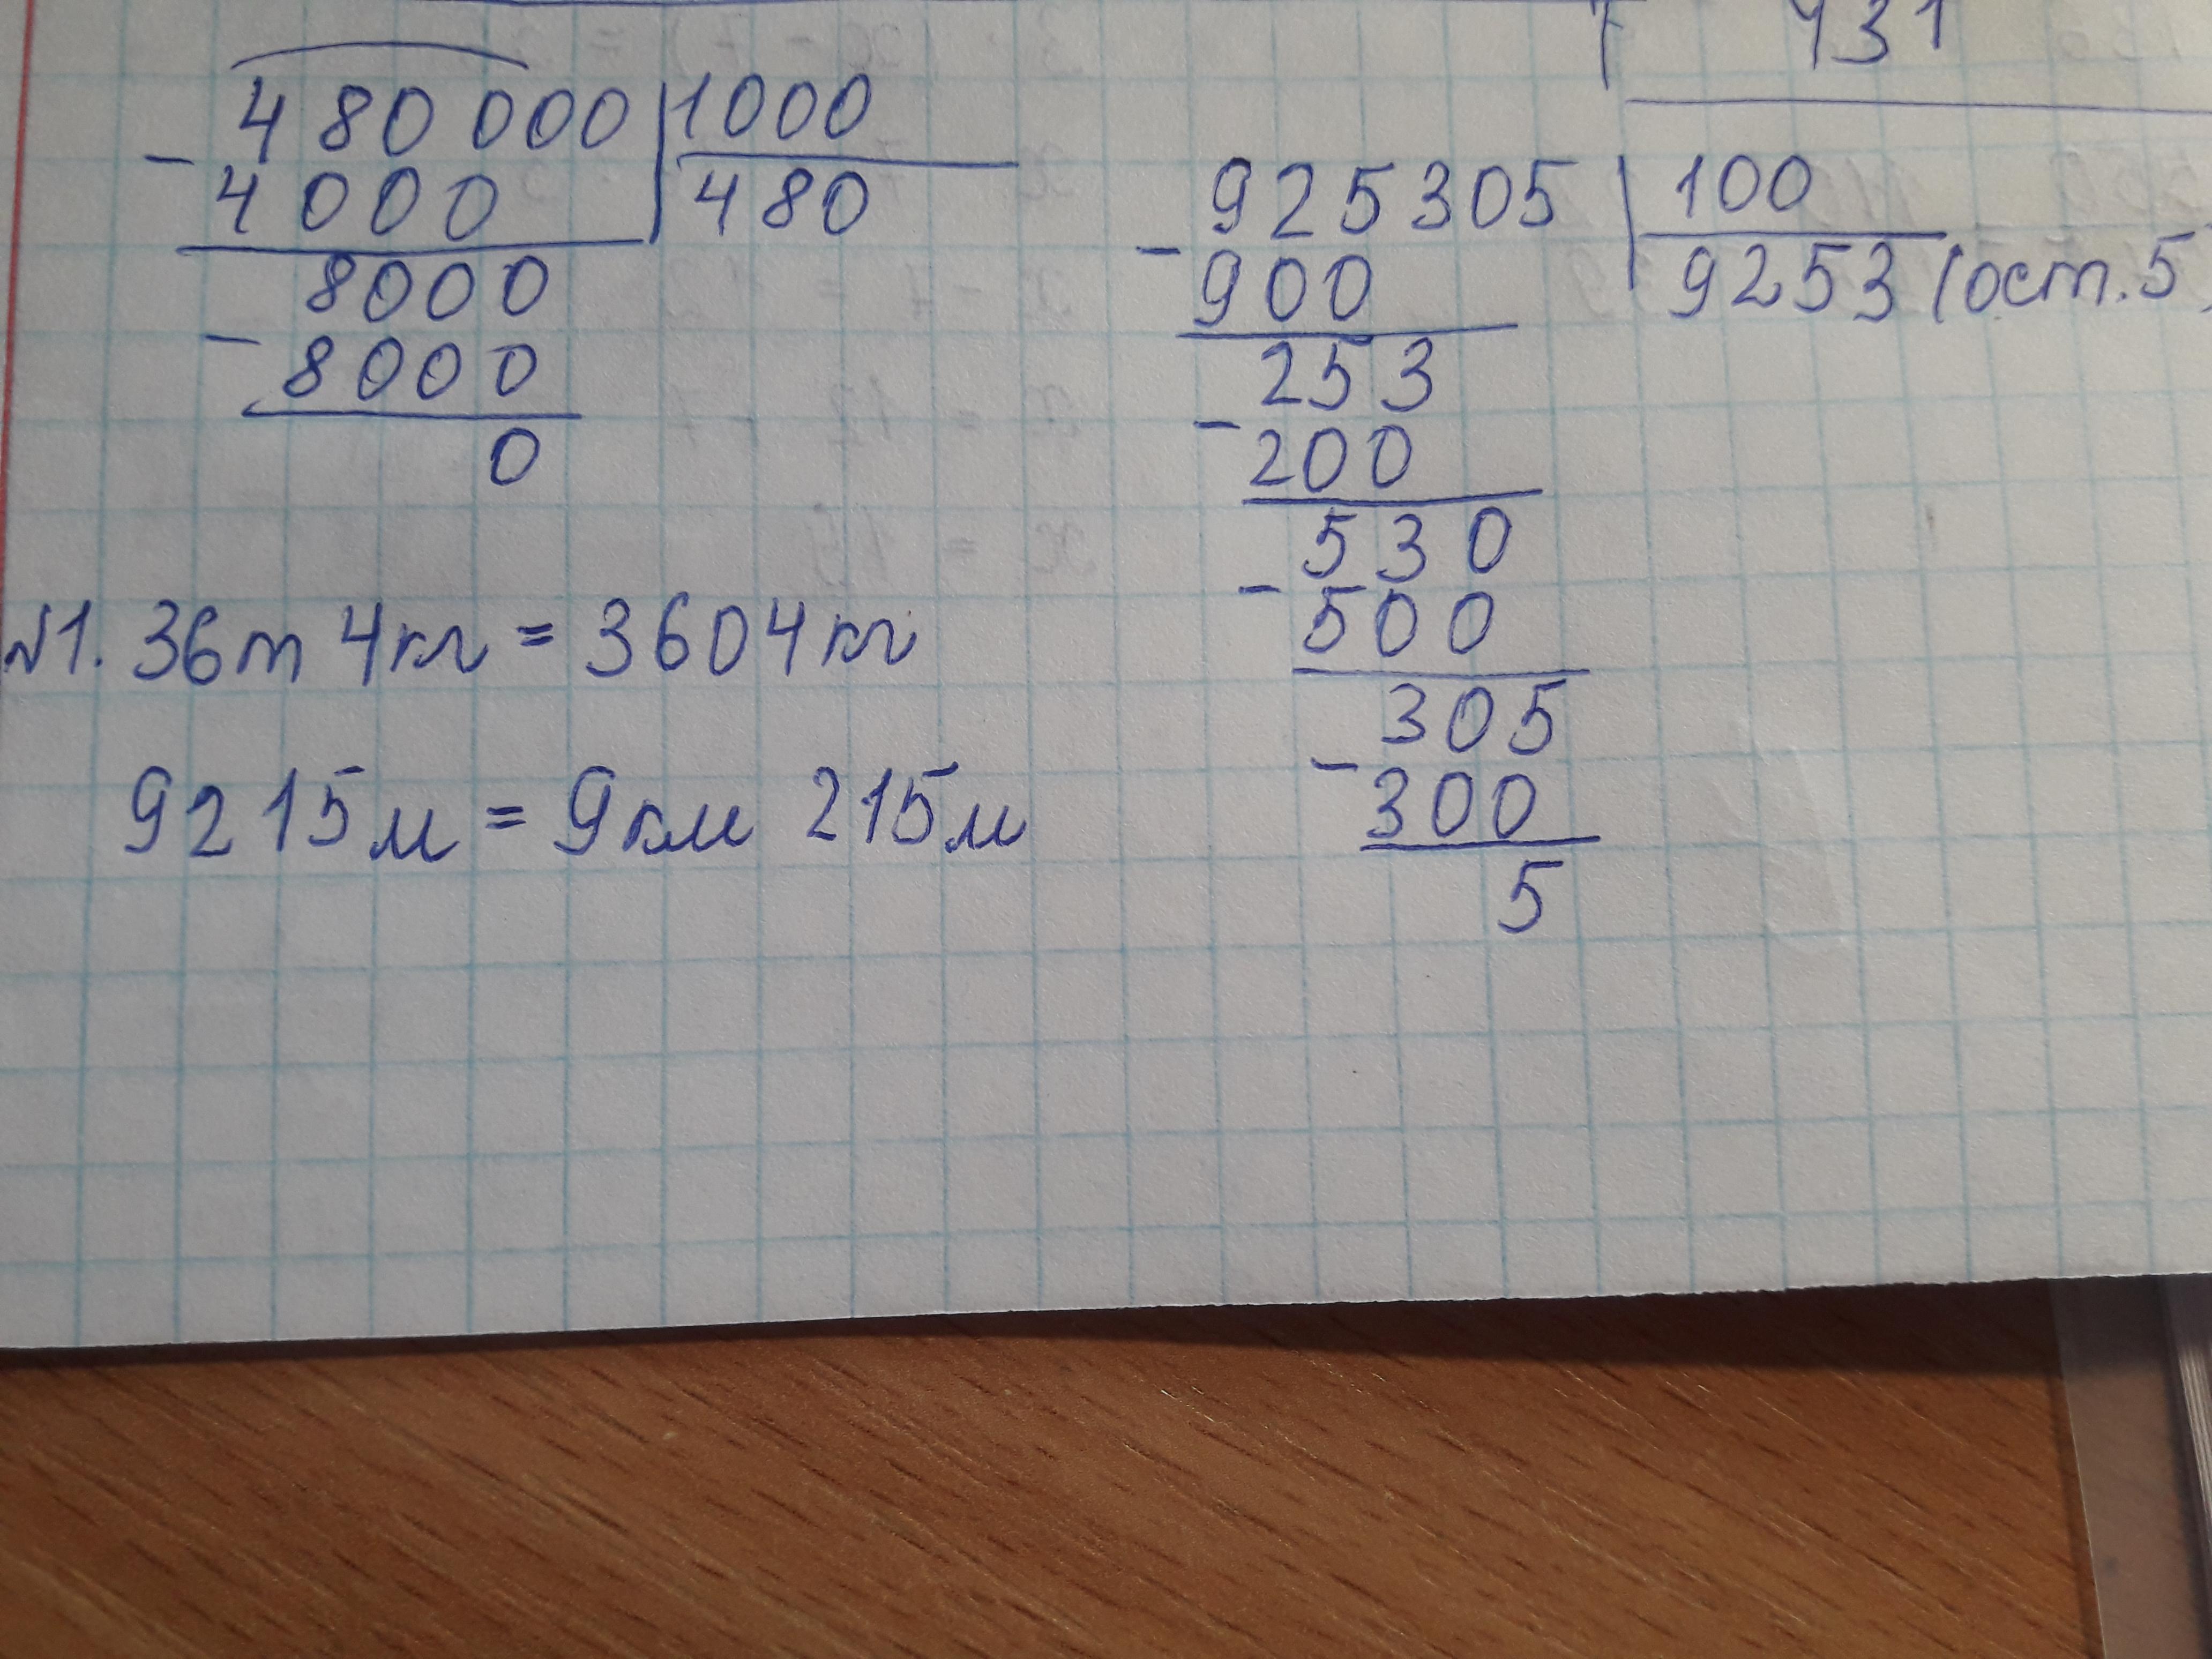 431
480000 | 1000
- 4000 | 480
8000
- 8000
0
925305 | 100
- 900 | 9253 (ост. 5)
253
- 200
530
- 500
305
- 300
5
№1. 36т 4кг = 3604кг
9215м = 9км 215м